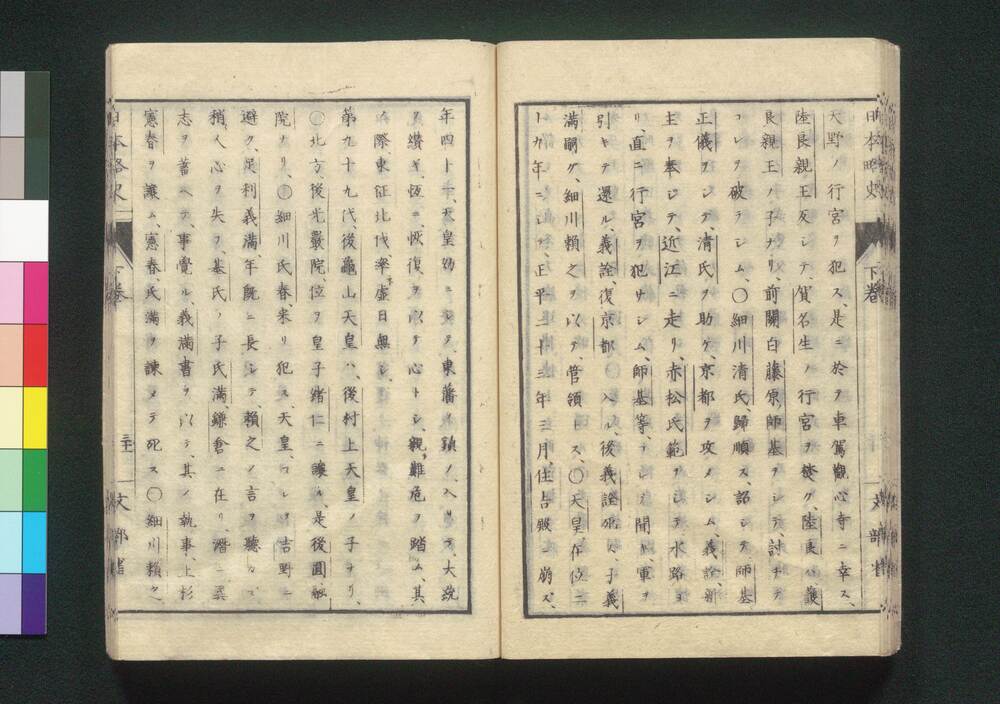 天野ノ行宮ヲ犯ス、是ニ於テ車駕觀心寺ニ幸ス、
陸良親王反シテ、賀名生ノ行宮ヲ燬ク、陸良ハ護
良親王ノ子ナリ、前關白藤原師基ヲシテ、討チテ
コレヲ破ラシム、〇細川清氏歸順ス、詔シテ師基
正儀ヲシテ、清氏ヲ助ケ、京都ヲ攻メシム、義詮、新
主ヲ奉シテ、近江ニ走リ、赤松氏範ヲシテ水路ヨ
リ、直ニ行宮ヲ犯サシム、師基等、
引キテ還ル、義詮、復京都ニ入ル、後義詮死シ、子義
滿嗣グ、細川頼之ヲ以テ、管領トス、〇天皇在位二
十九年ニシテ、正平二十三年三月、住吉殿ニ崩ズ、
日本略史
下卷
文部省
年四十一、天皇幼ニシテ、東藩ノ鎮ノ入リテ、大統
ヲ纉ギ、恆ニ恢復ヲ以テ心トシ、親ラ難危ヲ踏ム、其
際、東征北伐、率ネ虚日無シ、
第九十九代、後龜山天皇ハ、後村上天皇ノ子ナリ、
〇北方、後光嚴院、位ヲ皇子緒仁ニ讓ル、是後圓融
院ナリ、〇細川氏春來リ犯ス、天皇コレヲ吉野ニ
避ク、足利義滿、年既ニ長シテ、頼之ノ言ヲ聽カズ、
稍人心ヲ失フ、基氏ノ子氏滿、鎌倉ニ在リ、潛ニ異
志ヲ蓄ヘテ、事覺ル、義滿書ヲ以テ、其ノ執事、上杉
憲春ヲ讓ム、憲春、氏滿ヲ諫メテ死ス、〇細川頼之
日本略史
下卷
三十
文部省